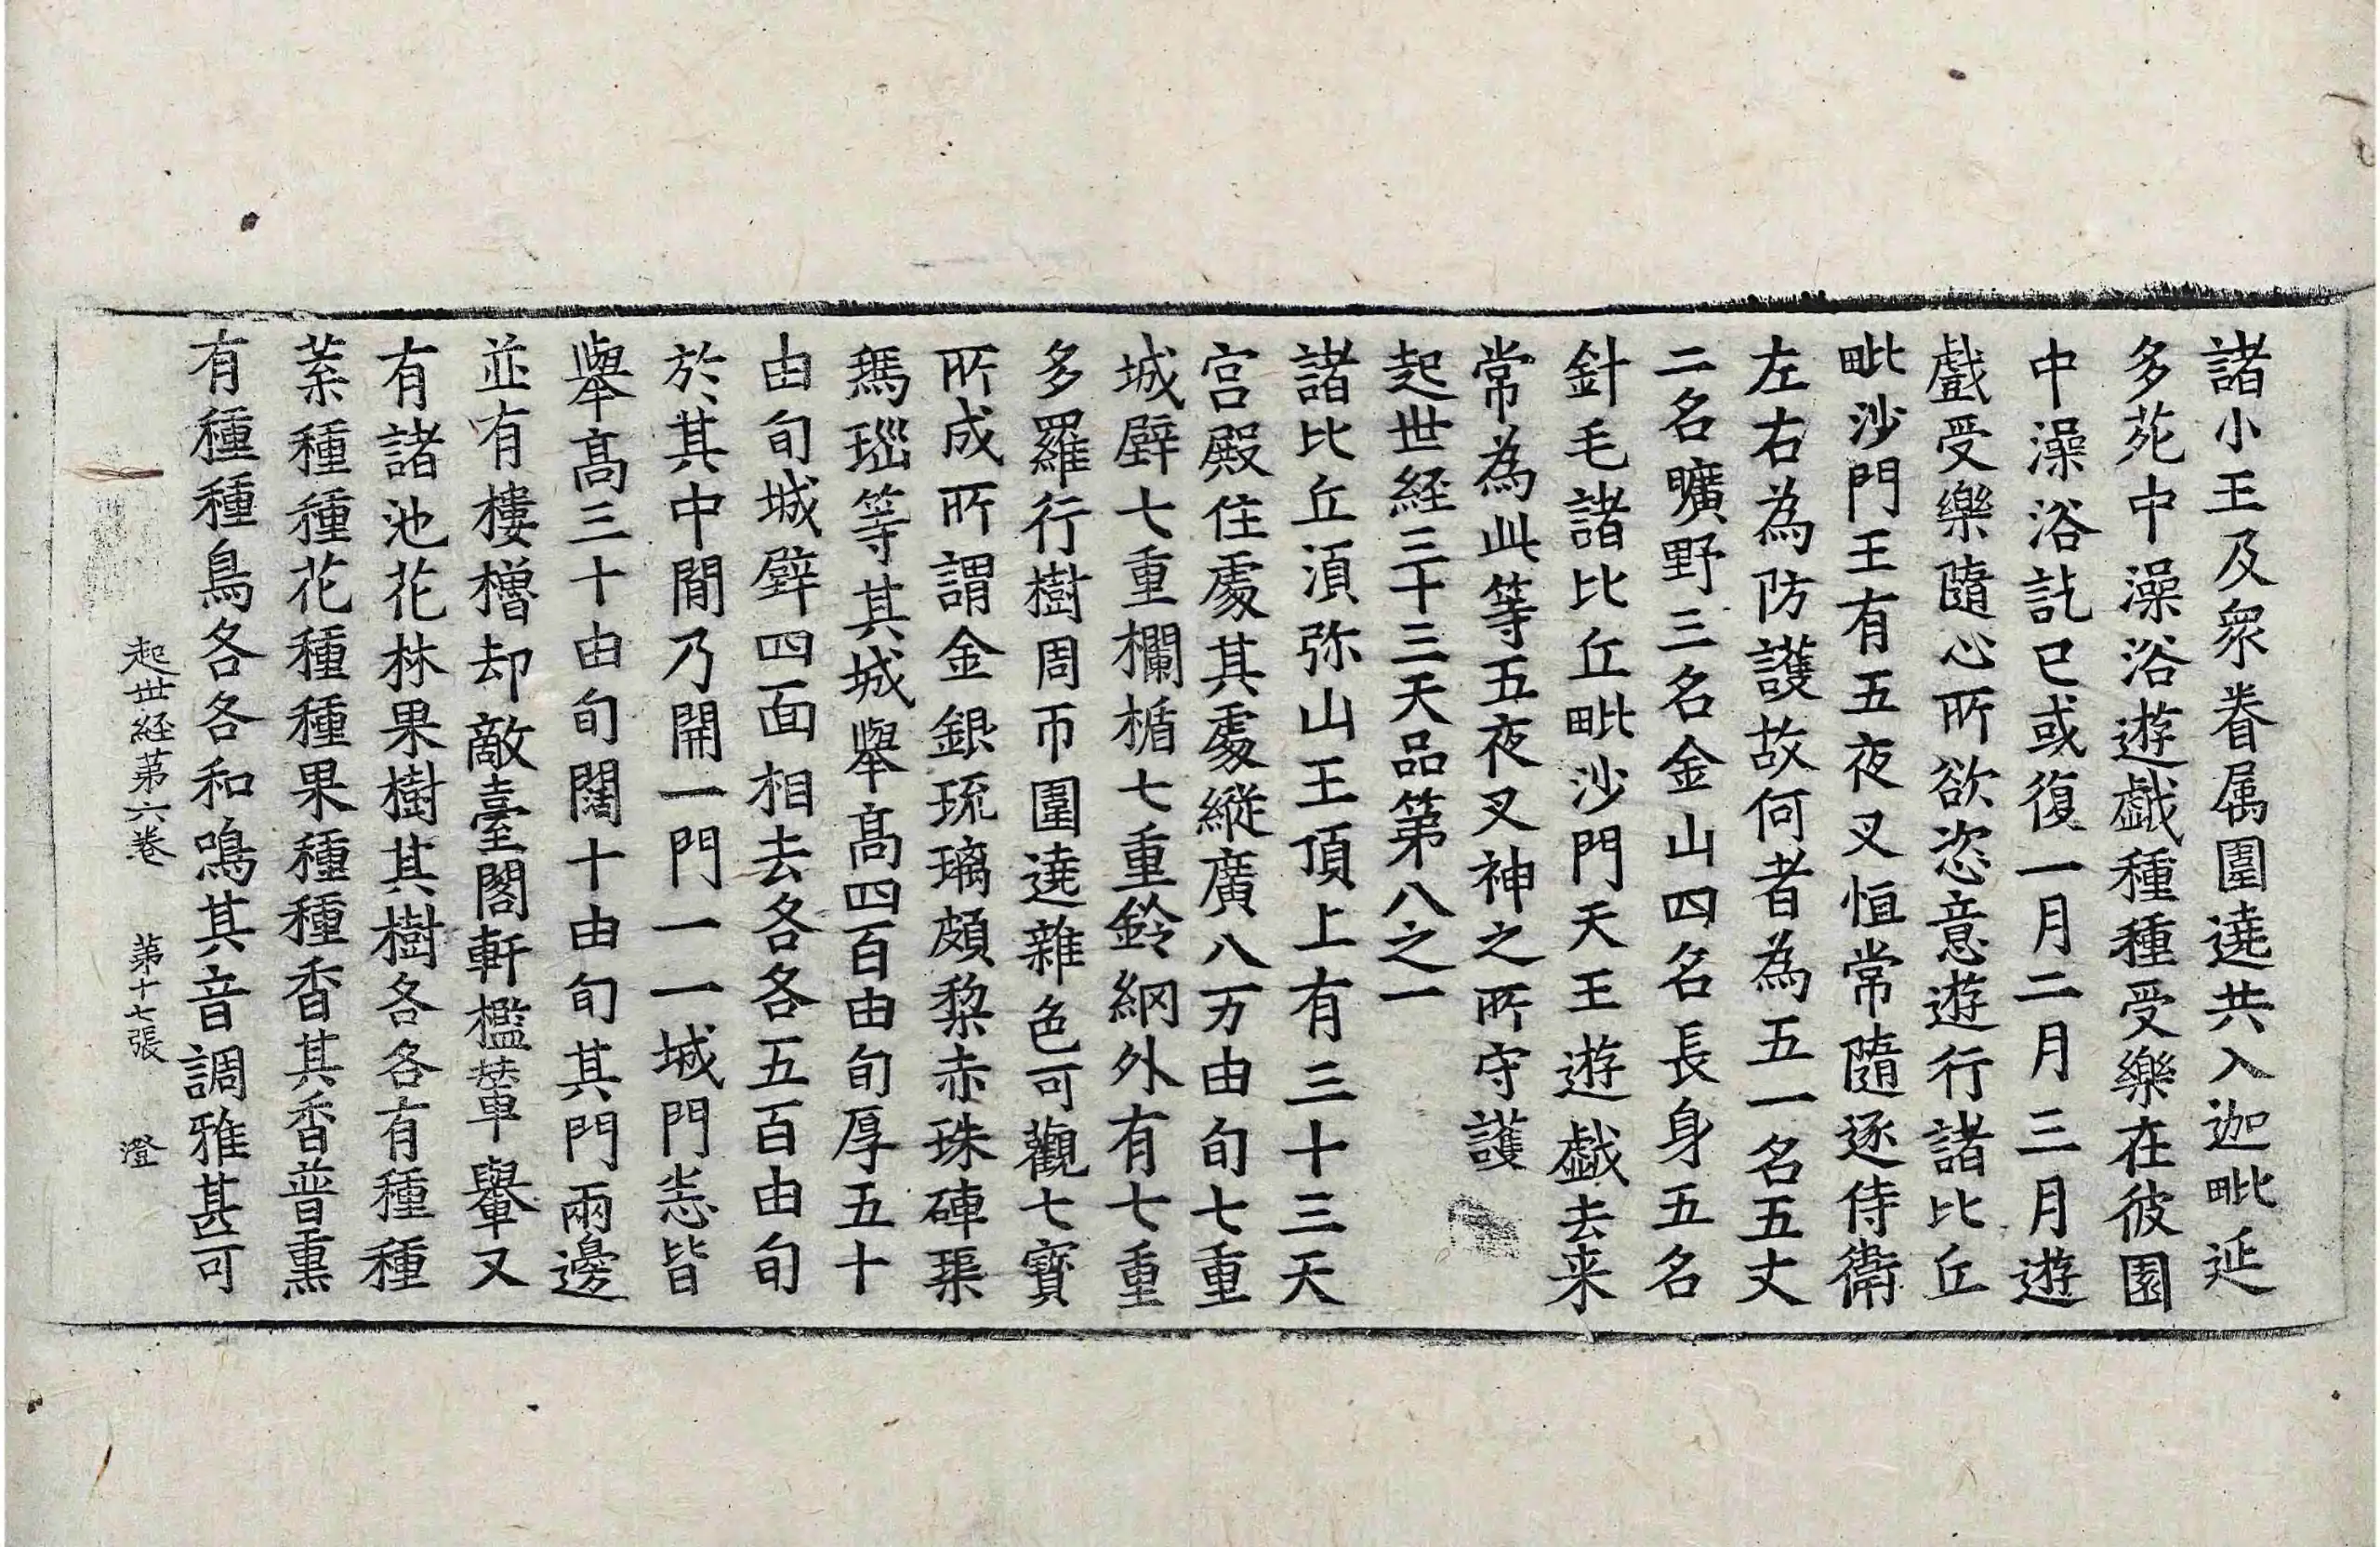 諸小王及衆眷属圍遶共入迦毗延
多苑中澡浴遊戯種種受樂在彼園
中澡浴訖已或復一月二月三月遊
戲受樂隨心所欲恣意遊行諸比丘
毗沙門王有五夜叉恒常隨逐侍衛
左右為防護故何者為五一名五丈
二名曠野三名金山四名長身五名
針毛諸比丘毗沙門天王遊戯去来
常為此等五夜叉神之所守護
起世経三十三天品第八之一
諸比丘湏弥山王頂上有三十三天
宮殿住處其處縱廣八万由旬七重
城壁七重欄楯七重鈴網外有七重
多羅行樹周帀圍遶雜色可觀七寳
所成所謂金銀琉璃頗黎赤珠硨璖
瑪瑙等其城舉髙四百由旬厚五十
由旬城壁四面相去各各五百由旬
於其中間乃開一門一一城門悉皆
舉髙三十由旬闊十由旬其門兩邊
並有樓櫓却敵臺閣軒檻輦轝又
有諸池花林果樹其樹各各有種種
葉種種花種種果種種香其香普熏
有種種鳥各各和鳴其音調雅甚可
起世経第六卷 第十七張 澄